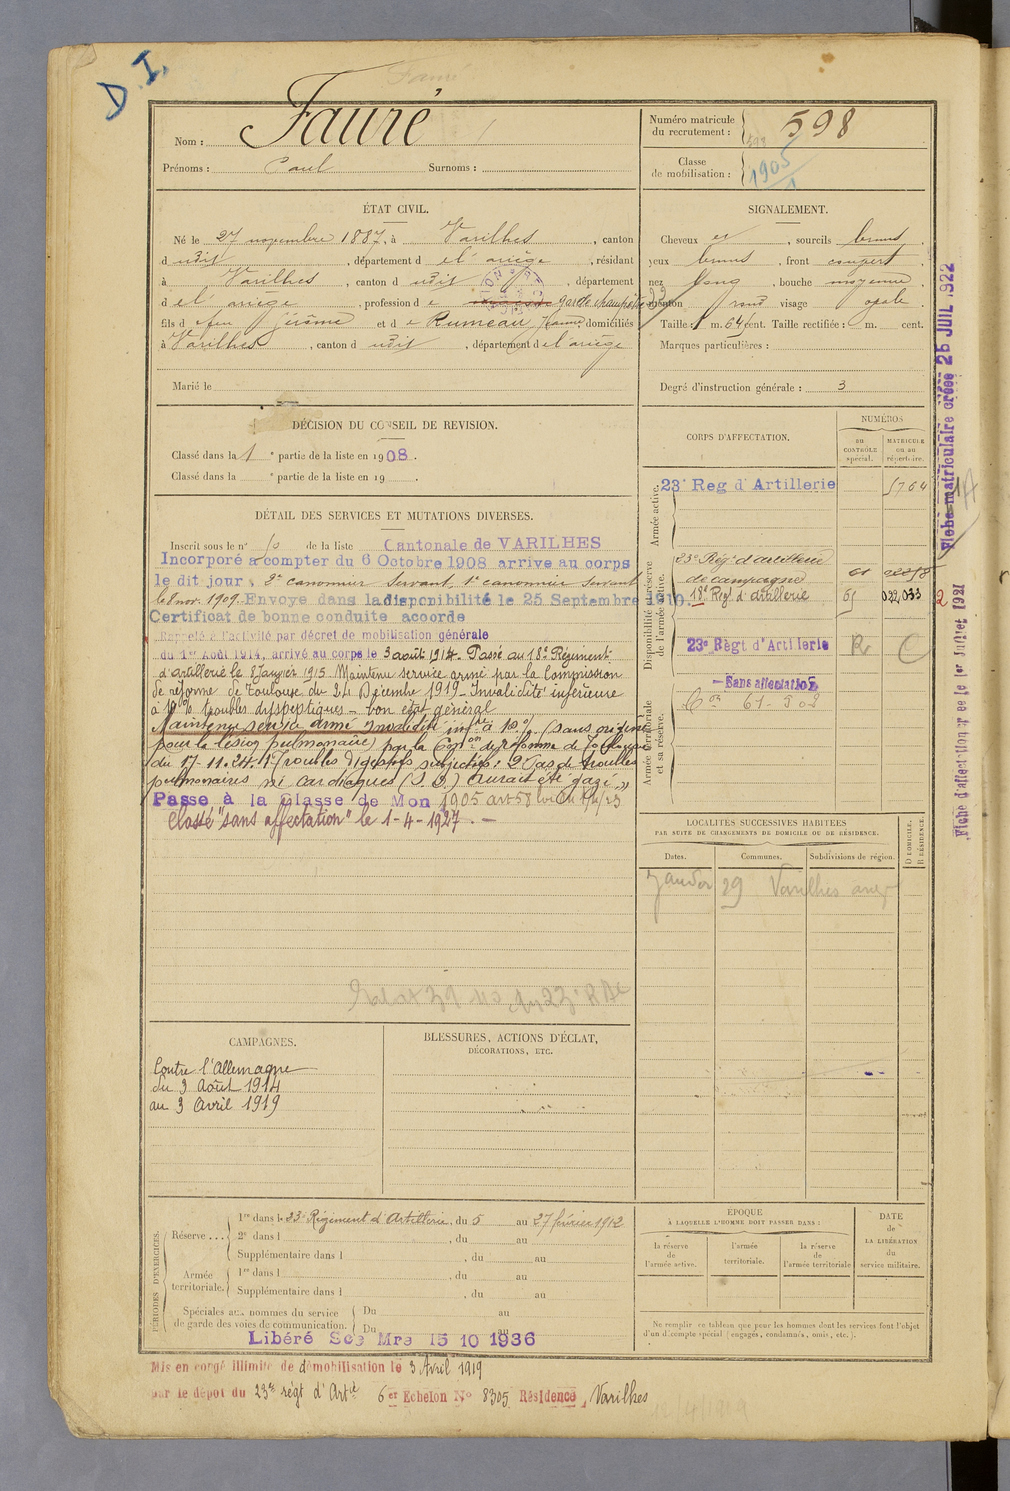 D. I.
Nom : Fauré
Prénoms : Paul Surnoms :
Numéro matricule du recrutement : 598
Classe de mobilisation : 1905
ÉTAT CIVIL.
Né le 27 novembre 1887, à Varilhes, canton
dudit, département de l'ariège, résidant
à Varilhes, canton dudit, département
de l'ariège, profession de garde champêtre
fils de feu Jérôme et de Rumeau Jeanne domiciliés
à Varilhes, canton dudit, département de l'ariège
Marié le
SIGNALEMENT.
Cheveux et, sourcils bruns,
yeux bruns, front couvert,
nez long, bouche moyenne,
menton rond visage ovale
Taille : 1 m. 64 cent. Taille rectifiée : m. cent.
Marques particulières :
Degré d'instruction générale : 3
DÉCISION DU CONSEIL DE REVISION.
Classé dans la 1e partie de la liste en 1908.
Classé dans la e partie de la liste en 19 .
CORPS D'AFFECTATION.
NUMÉROS
au CONTRÔLE spécial.
MATRICULE ou au répertoire.
Armée active.
23e Reg d'Artillerie 5764
Disponibilité et réserve de l'armée active.
23e Régt d'artillerie de campagne 61
18e Régt d'artillerie 61 022033
23e Règt d'Artillerie R C
Armée territoriale et sa réserve.
Sans affectation
DÉTAIL DES SERVICES ET MUTATIONS DIVERSES.
Inscrit sous le n° 10 de la liste Cantonale de VARILHES
Incorporé à compter du 6 Octobre 1908 arrive au corps
le dit jour, 2e canonnier servant 1e canonnier servant
le 8 nov. 1909. Envoye dans la disponibilité le 25 Septembre 1910.
Certificat de bonne conduite accorde
Rappelé à l'activité par décret de mobilisation générale
du 1er Août 1914, arrivé au corps le 3 août 1914. Passé au 18e Régiment
d'artillerie le 8 Janvier 1915 Maintenu service armé par la Commission
de réforme de Toulouse du 24 Décembre 1919 - Invalidité inférieure
à 10% troubles dyspeptiques - bon état général
Maintenu service armé Invalidité infre à 10% (sans origine
pour la lésion pulmonaire) par la Conon de réforme de Toulouse
du 17-11.24. 1° Troubles digestifs subjectifs : 2° Pas de troubles
pulmonaires ni cardiaques (S. D) Aurait été gazé »
Passe à la Classe de Mon 1905 art 58 loi du 1/4/23
Classé "sans affectation" le 1-4-1927. -
LOCALITÉS SUCCESSIVES HABITÉES
PAR SUITE DE CHANGEMENTS DE DOMICILE OU DE RÉSIDENCE.
Dates. Communes. Subdivisions de région.
D DOMICILE.
R RÉSIDENCE.
29 Varilhes
CAMPAGNES.
Contre l'Allemagne
du 3 Août 1914
au 3 Avril 1919
BLESSURES, ACTIONS D'ÉCLAT,
DÉCORATIONS, ETC.
PÉRIODES D'EXERCICES.
Réserve ....
1re dans l 23e Régiment d'Artillerie, du 5 au 27 février 1912
2e dans l , du au
Supplémentaire dans l , du au
Armée territoriale.
1re dans l , du au
Supplémentaire dans l , du au
Spéciales aux hommes du service de garde des voies de communication.
Du au
Du au
Libéré Sce Mre 15 10 1936
ÉPOQUE
À LAQUELLE L'HOMME DOIT PASSER DANS :
la réserve de l'armée active.
l'armée territoriale.
la réserve de l'armée territoriale
DATE de LA LIBÉRATION du service militaire.
Ne remplir ce tableau que pour les hommes dont les services font l'objet
d'un décompte spécial (engagés, condamnés, omis, etc.).
Mis en congé illimité de démobilisation le 3 Avril 1919
par le dépot du 23e régt d'Artie 6er Echelon No 8305 Résidence, Varilhes
Fiche matriculaire créée 25 JUIL 1922
Fiche d'affectation créée le 1er Juillet 1921